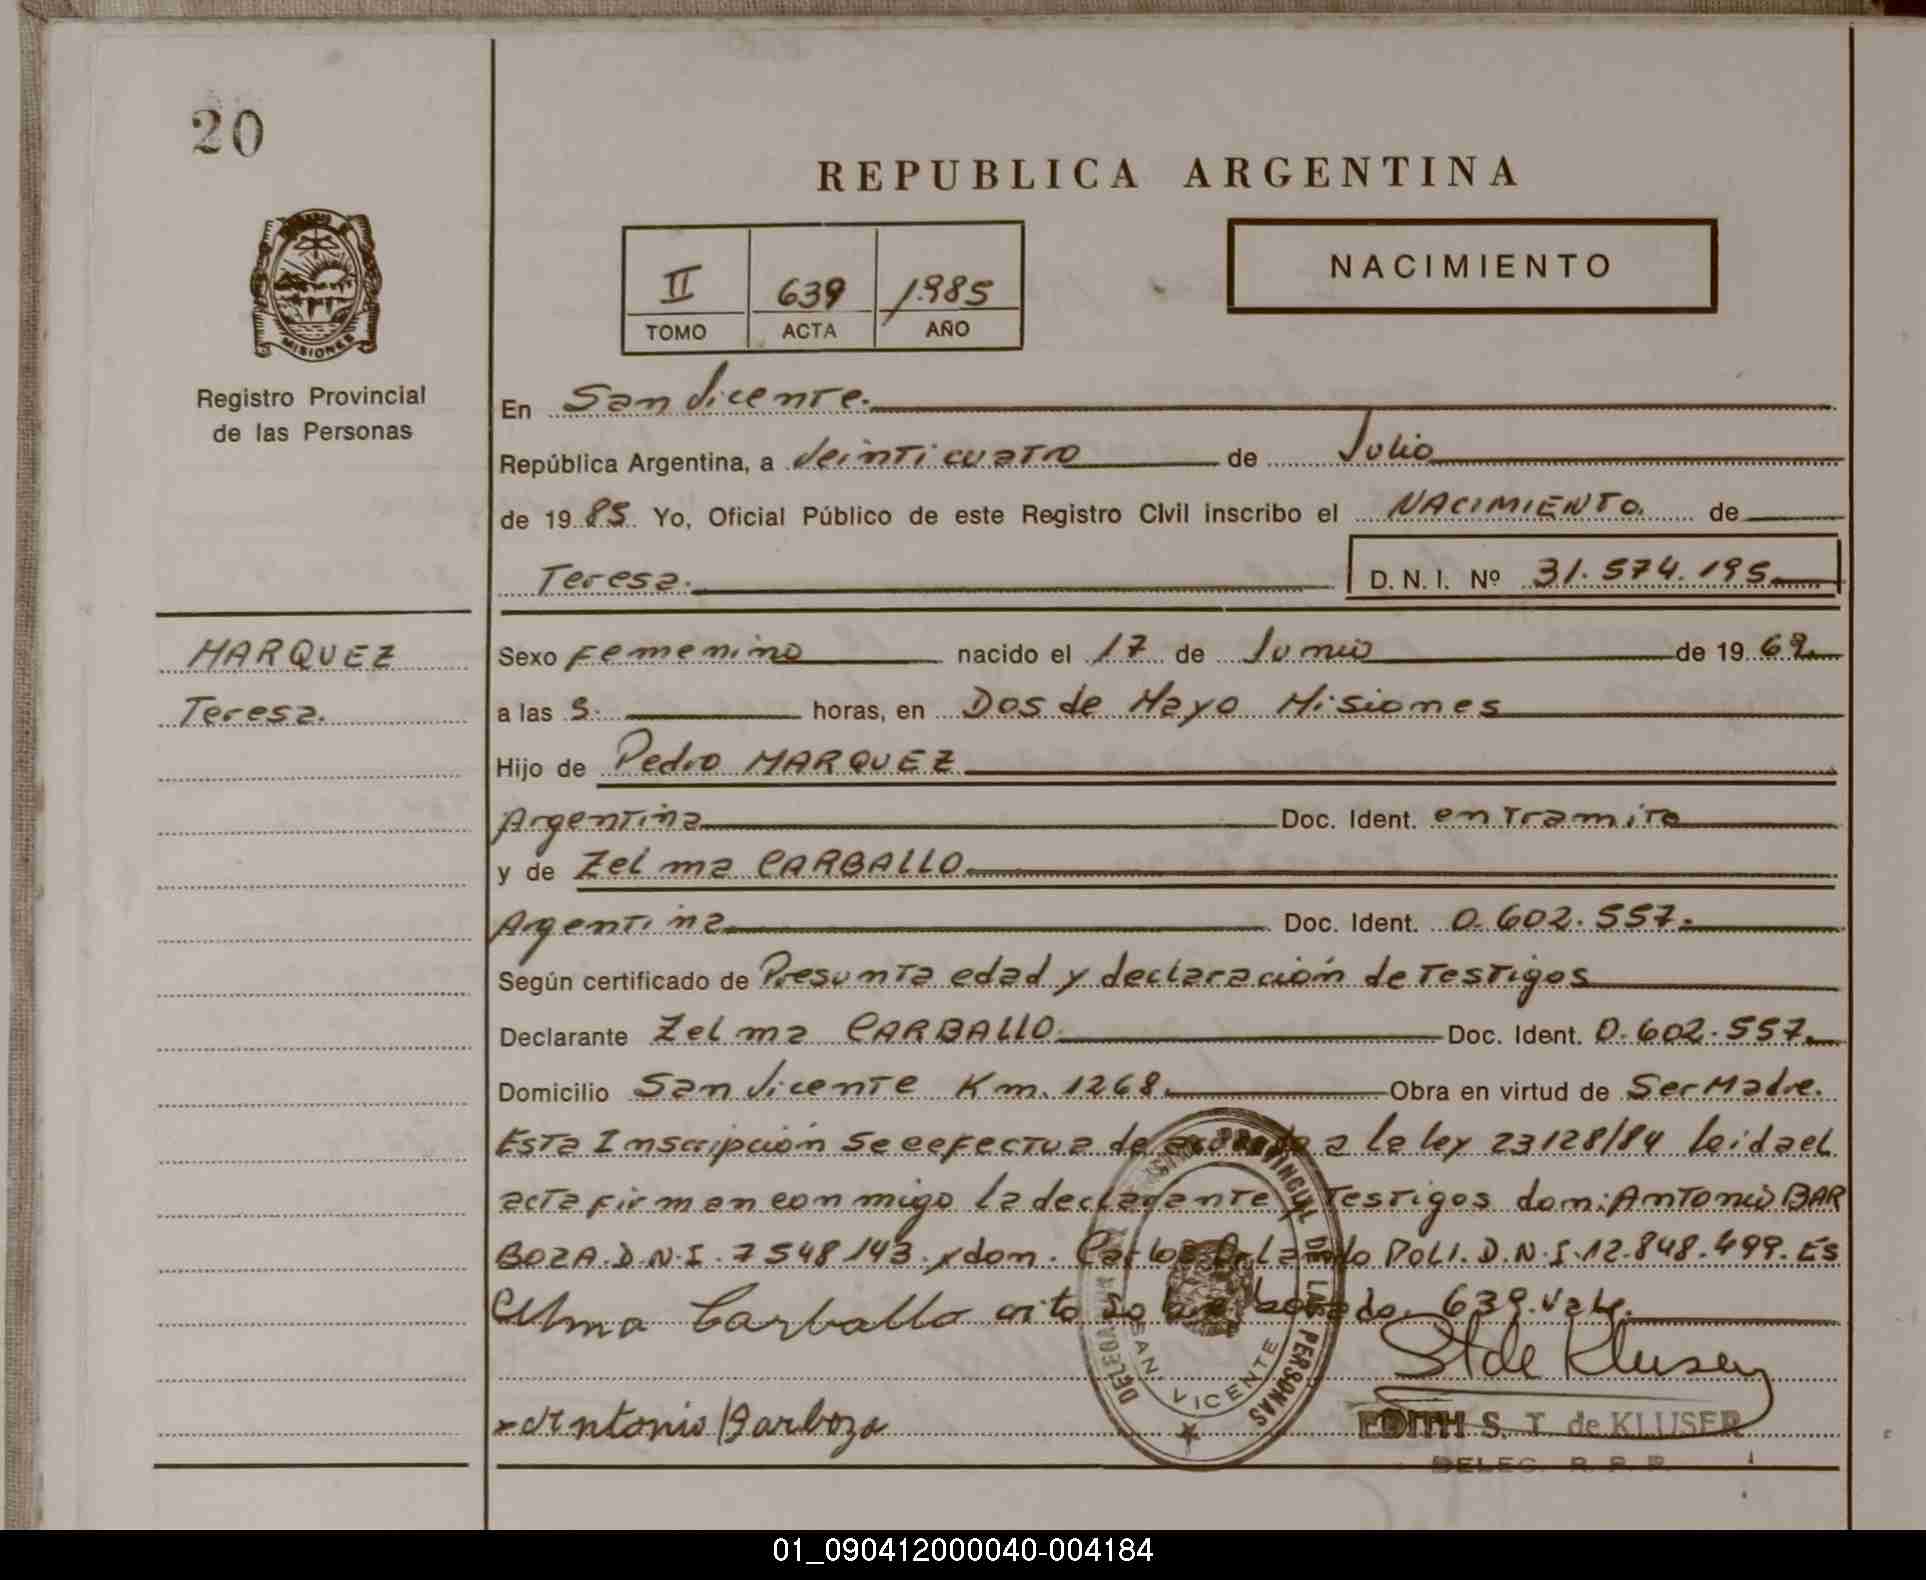 20
REPUBLICA ARGENTINA
II 639 1.985
TOMO ACTA AÑO
NACIMIENTO
MISIONES
Registro Provincial
de las Personas
En San Vicente.
República Argentina, a Veinticuatro de Julio
de 19 85 Yo, Oficial Público de este Registro Civil inscribo el NACIMIENTO. de
Teresa. D. N. I. Nº 31.574.195
MARQUEZ
Teresa.
Sexo Femenino nacido el 17 de Junio de 19 69.
a las 5. horas, en Dos de Mayo Misiones
Hijo de Pedro MARQUEZ
Argentina Doc. Ident. en Tramite
y de Zelma CARBALLO
Argentina Doc. Ident. 0.602.557.
Según certificado de Presunta edad y declaración de Testigos
Declarante Zelma CARBALLO Doc. Ident. 0.602.557.
Domicilio San Vicente Km. 1268. Obra en virtud de Ser Madre.
Esta Inscripción Se eefectua de acuerdo a la ley 23128/84 leida el
acta firman conmigo la declarante y Testigos don: Antonio BAR
BOZA. D.N.I. 7548143. y don. Carlos Orlando POLI. D.N.I. 12.848.499. Es
Celma Carballo crito so bre borrado. 639. Vale.
St de Kluser
x Antonio Barboza
EDITH S. T. de KLUSER
DELEG. R. P. P.
PROVINCIAL DE LAS PERSONAS
DELEGACION
SAN VICENTE
01_090412000040-004184